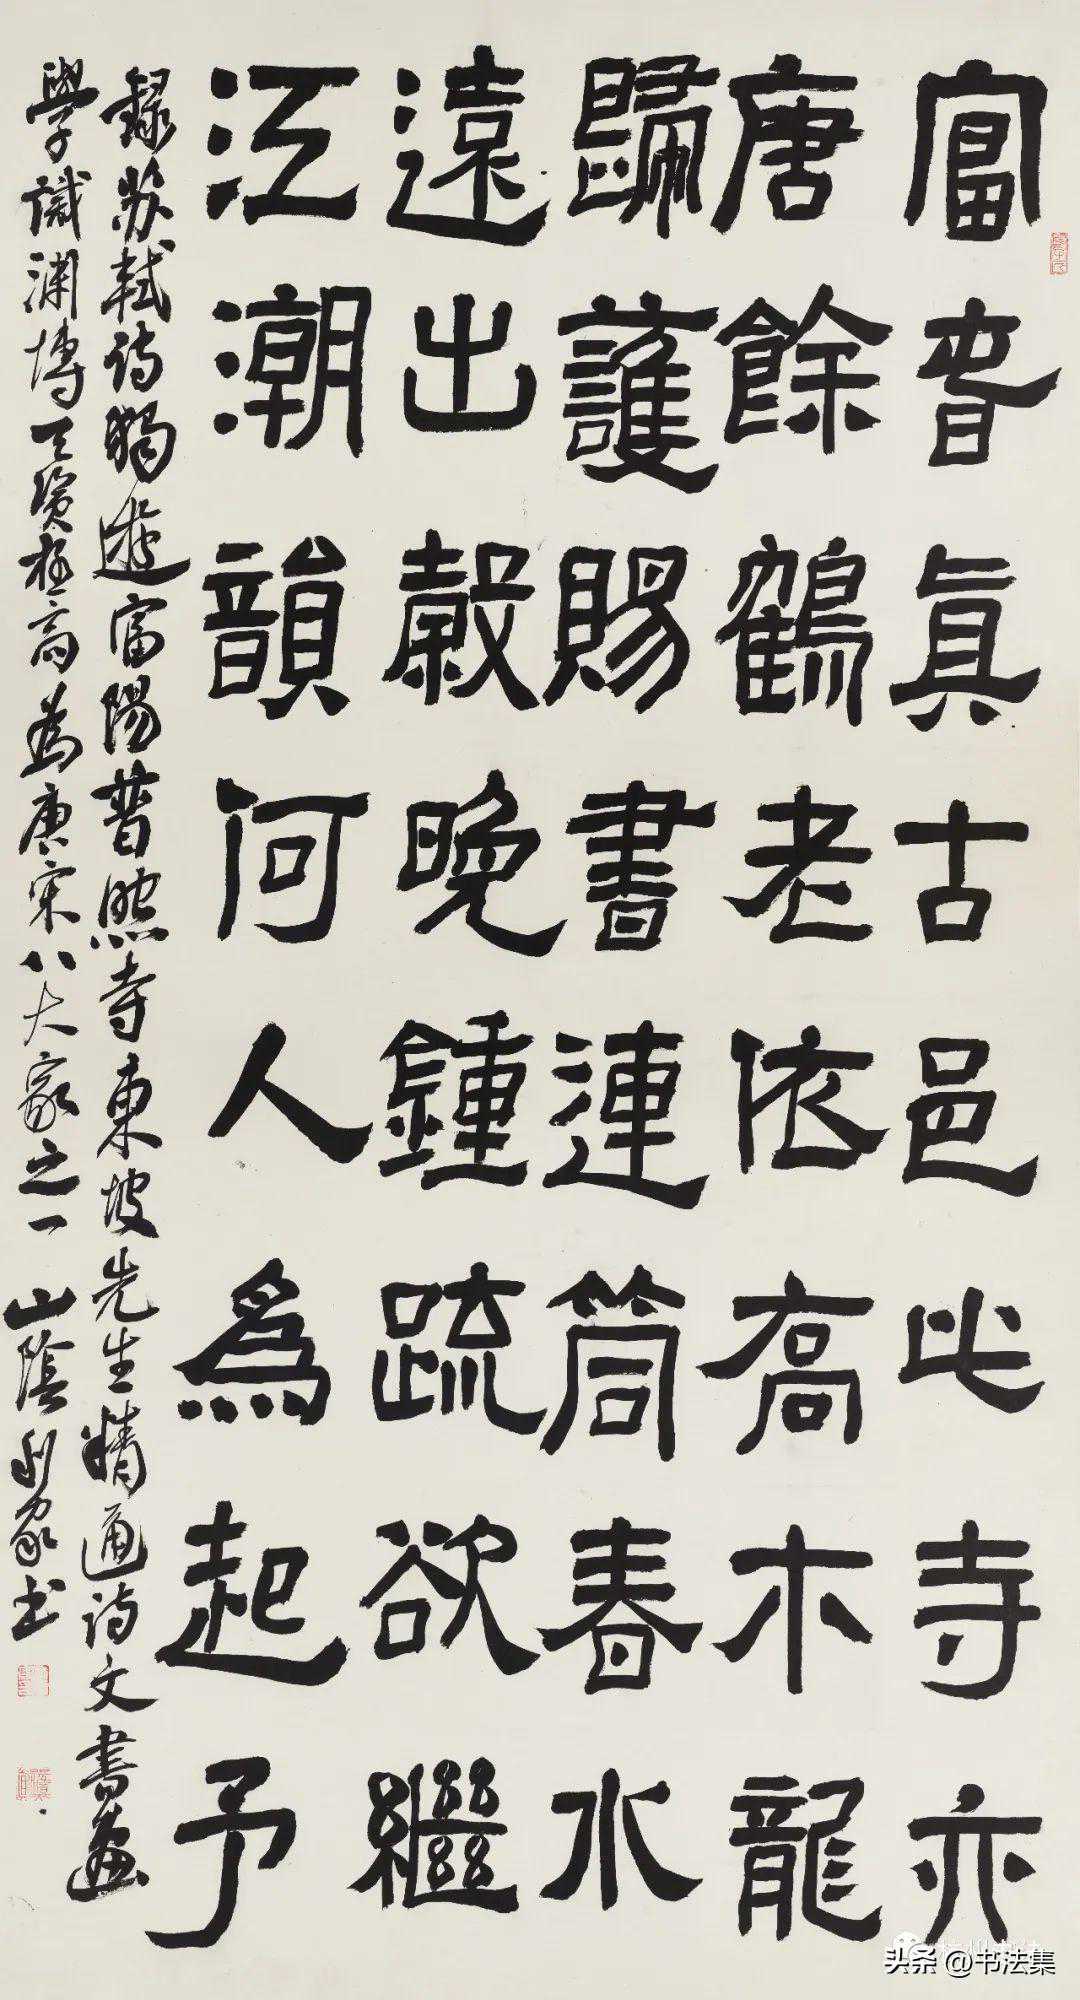 富旾眞古邑此寺亦
唐餘鶴老依喬木龍
歸護賜書連筒春水
遠出穀晚鍾疏欲繼
江潮韻何人為起予
録蘇軾诗獨遊富陽普照寺東坡先生精通诗文書畫
學識淵博天資極高為唐宋八大家之一 山陰
头条 @书法集